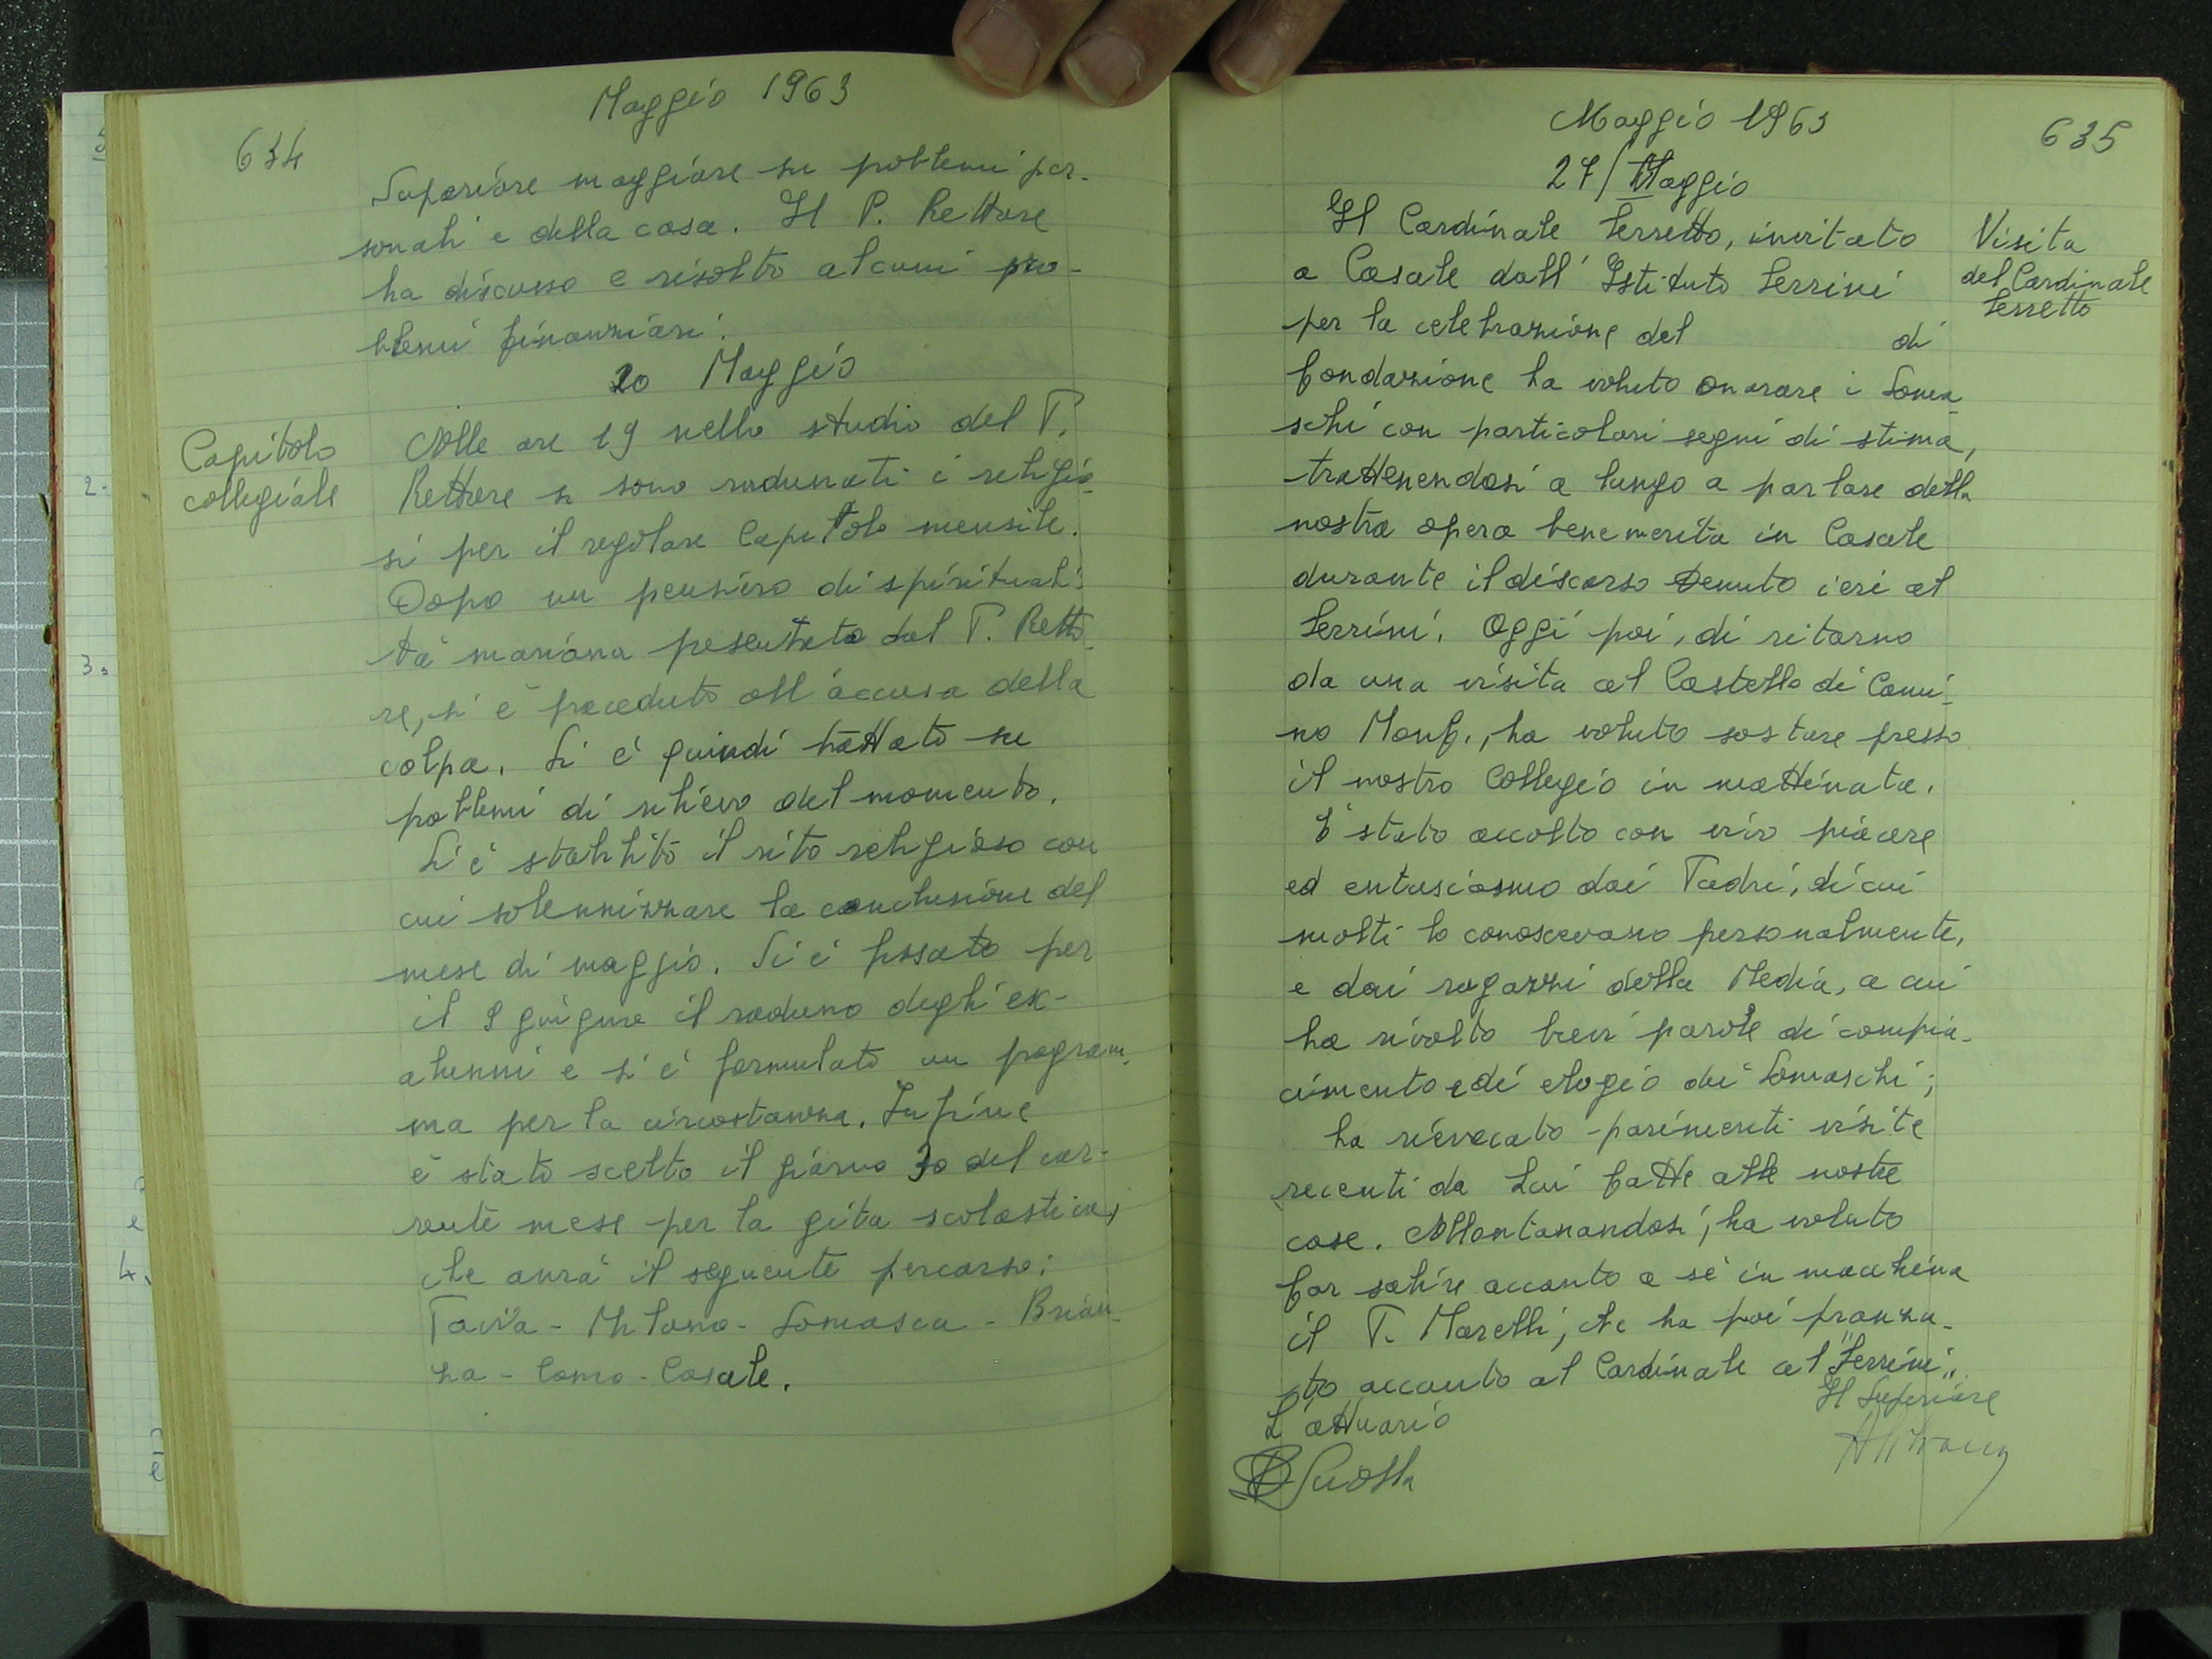 634
Maggio 1963
Superiore maggiore su problemi per-
sonali e della casa. Il P. Rettore
ha discusso e risolto alcuni pro-
blemi finanziari.
20 Maggio
Capitolo
collegiale
Alle ore 19 nello studio del P.
Rettore si sono radunati i religio-
si per il regolare Capitolo mensile.
Dopo un pensiero di spirituali-
tà mariana presentato dal P. Retto-
re, si è proceduto all'accusa della
colpa. Si è quindi trattato su
problemi di rilievo del momento.
Si è stabilito il rito religioso con
cui solennizzare la conclusione del
mese di maggio. Si è fissato per
il 9 giugno il raduno degli ex-
alunni e si è formulato un program-
ma per la circostanza. Infine
è stato scelto il giorno 30 del cor-
rente mese per la gita scolastica,
che avrà il seguente percorso:
Pavia - Milano - Somasca - Brian-
za - Como - Casale.
635
Maggio 1963
27/Maggio
Visita
del Cardinale
Ferretto
Il Cardinale Ferretto, invitato
a Casale dall'Istituto Ferrini
per la celebrazione del di
fondazione ha voluto onorare i Soma-
schi con particolari segni di stima,
trattenendosi a lungo a parlare della
nostra opera benemerita in Casale
durante il discorso tenuto ieri al
Ferrini. Oggi poi, di ritorno
da una visita al Castello di Cami-
no Monf., ha voluto sostare presso
il nostro Collegio in mattinata.
È stato accolto con vivo piacere
ed entusiasmo dai Padri, di cui
molti lo conoscevano personalmente,
e dai ragazzi della Media, a cui
ha rivolto brevi parole di compia-
cimento e di elogio dei Somaschi;
ha rievocato parimenti visite
recenti da Lui fatte alle nostre
case. Allontanandosi, ha voluto
far salire accanto a sé in macchina
il P. Marelli, che ha poi pranza-
to accanto al Cardinale al "Ferrini".
L'attuario
Il Superiore